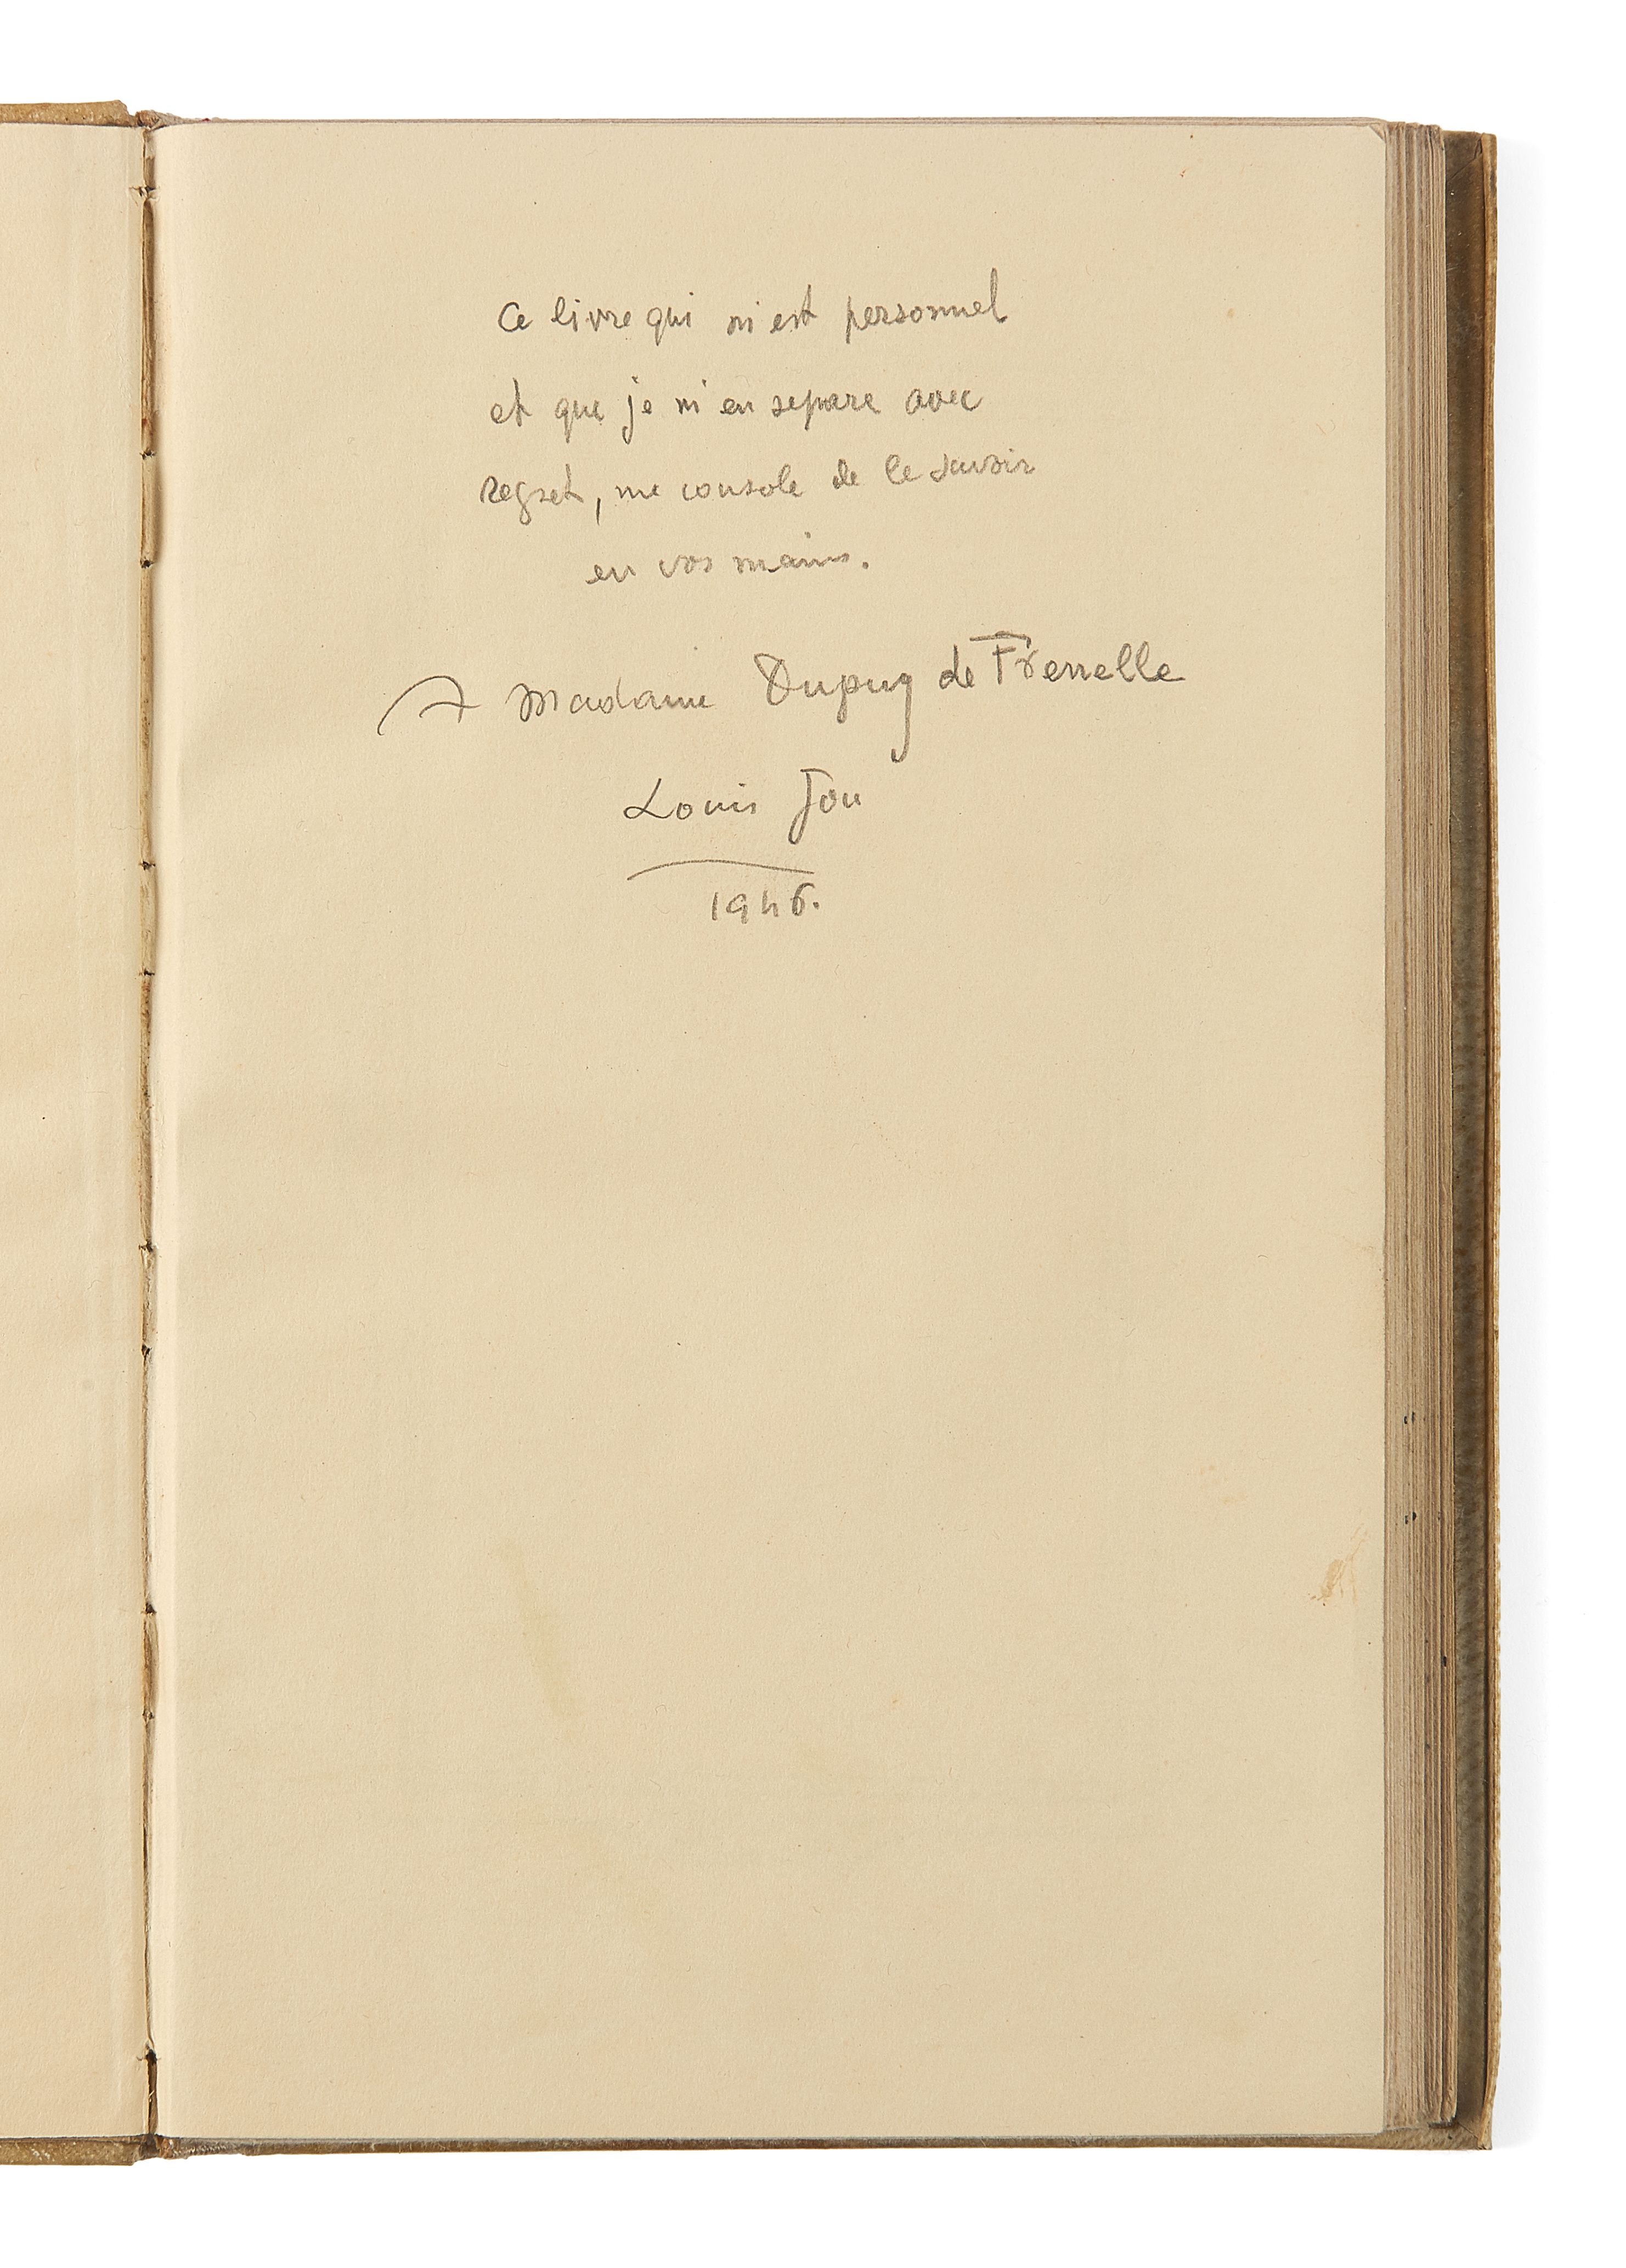 Ce livre qui m'est personnel
et que je m'en separe avec
regret, me console de le savoir
en vos mains.
A Madame Dupuy de Frenelle
Louis Jou
1946.